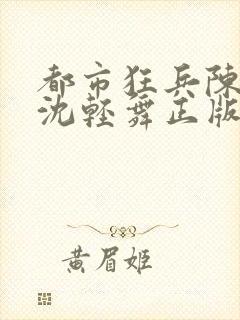 都市狂兵陳
沈輕舞正版
黄眉姬